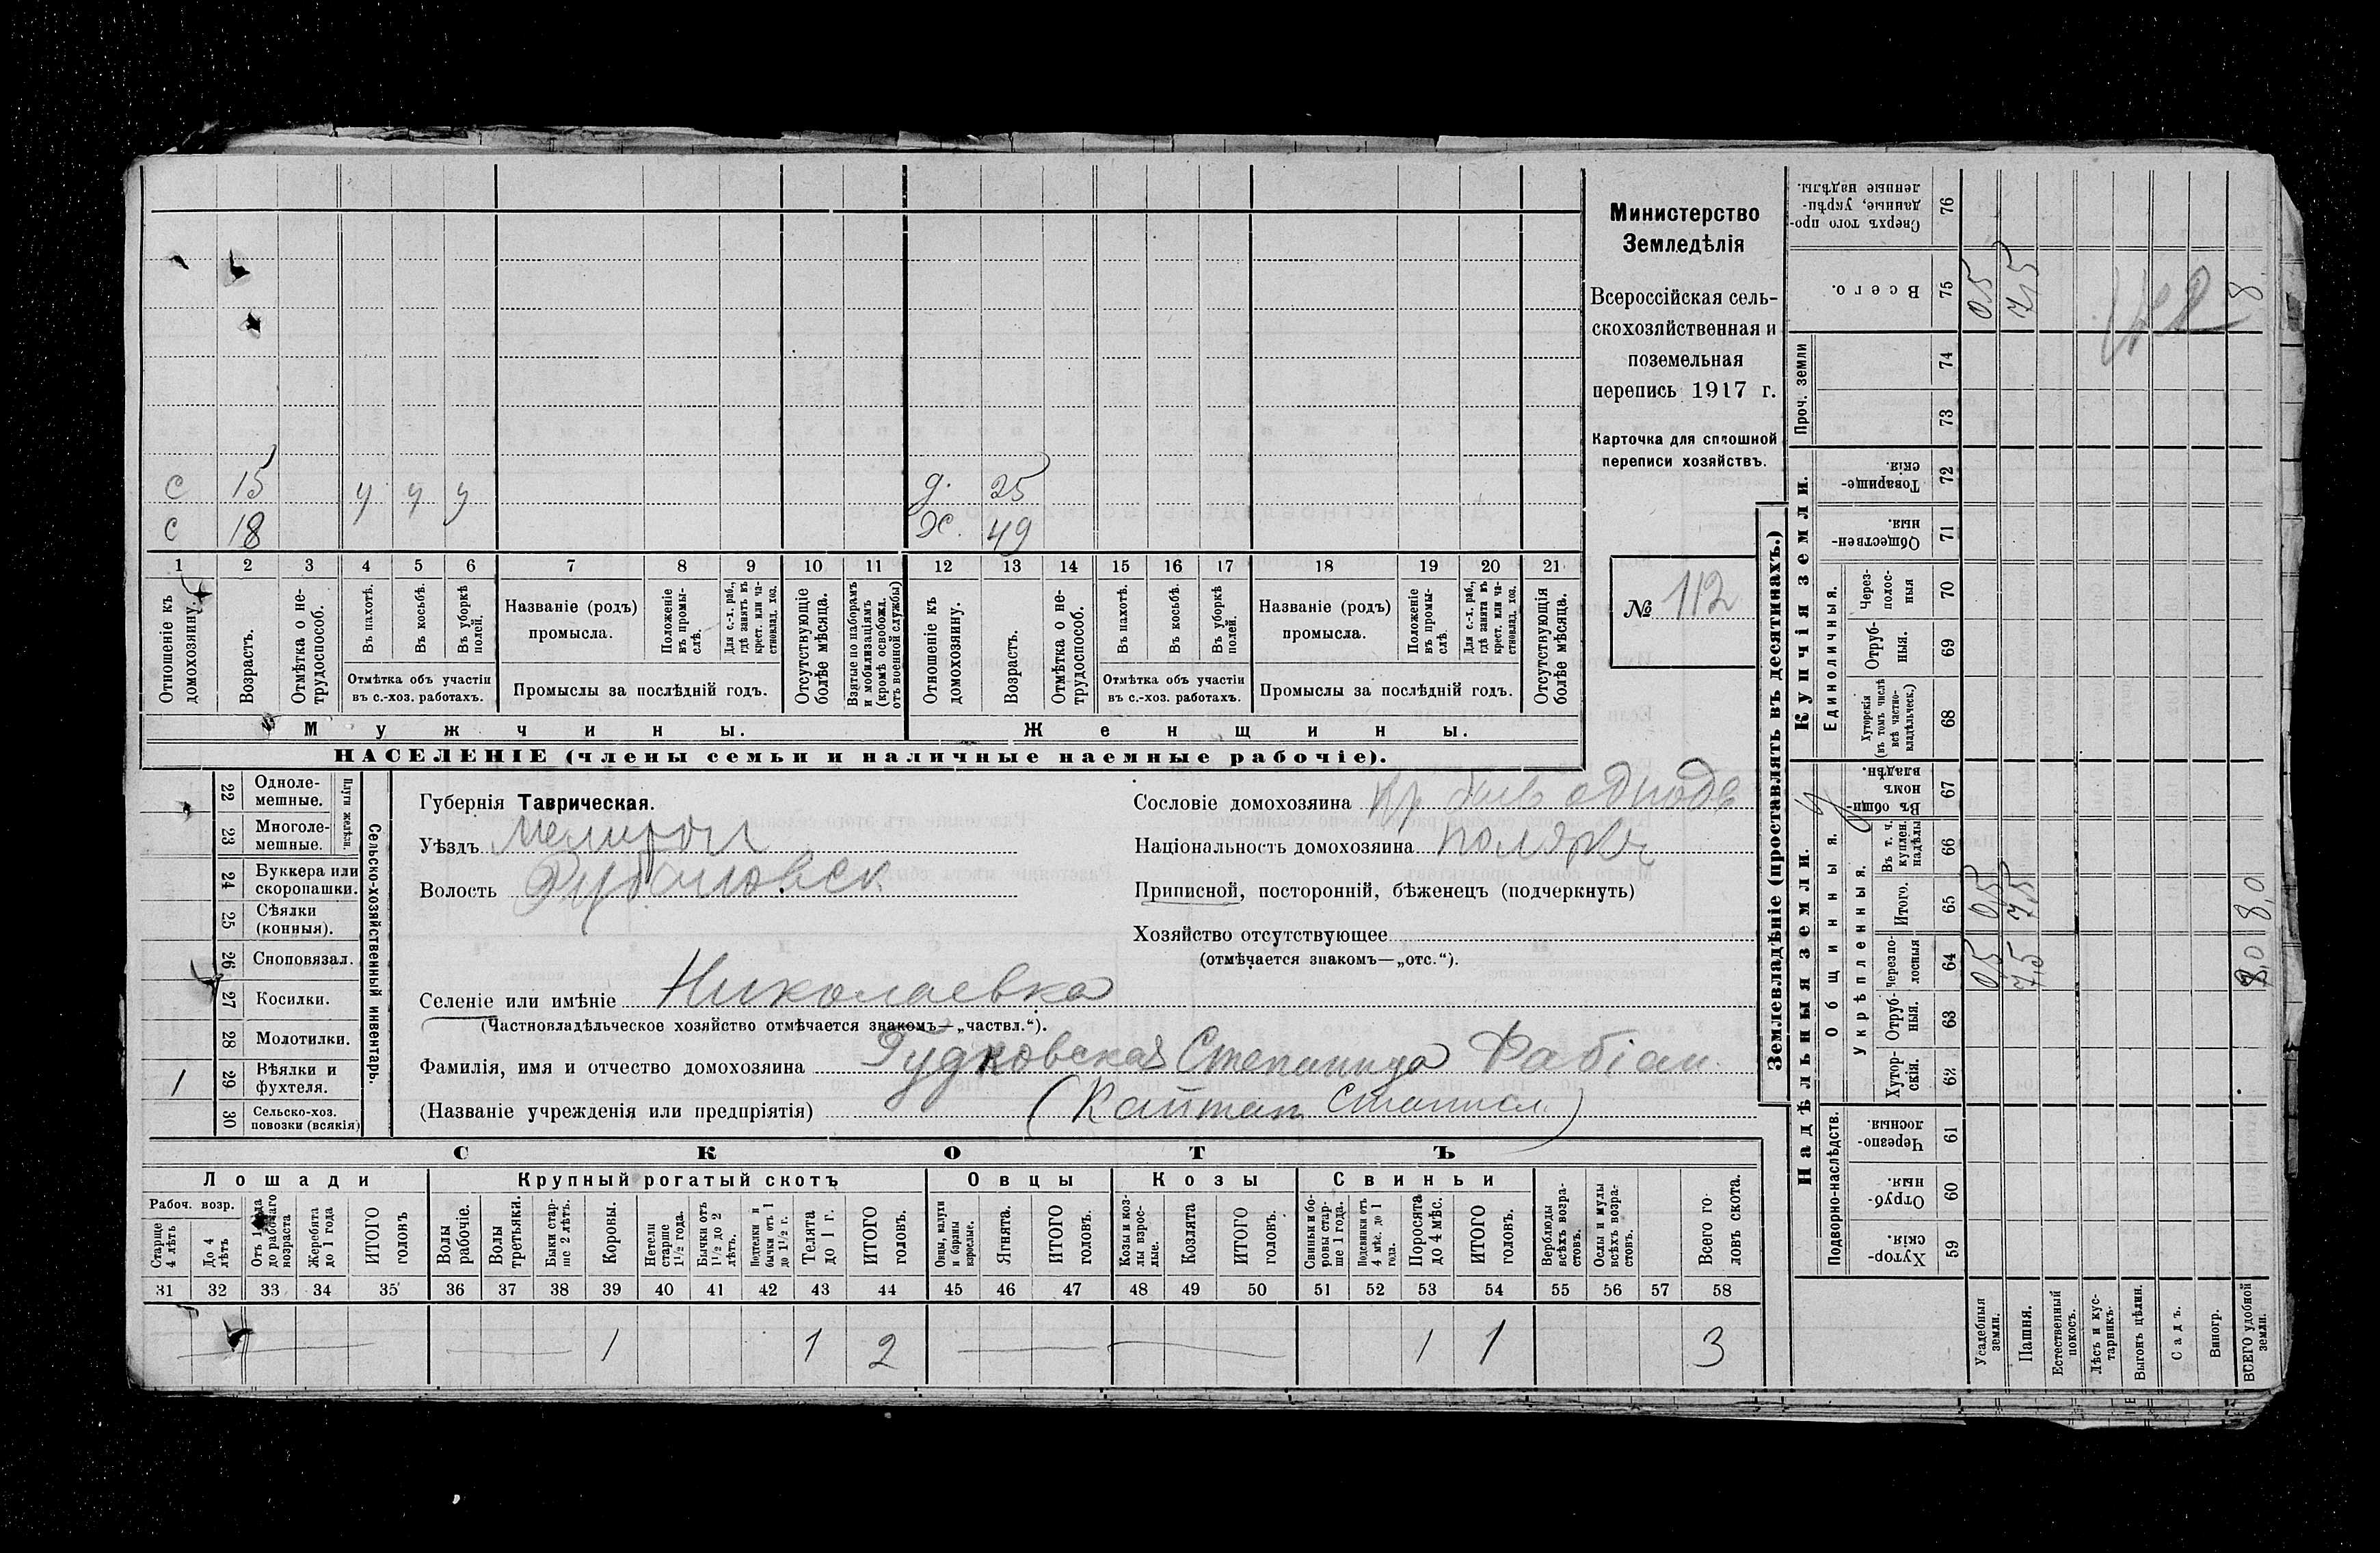 с 15 ч ч у д. 25
с 18 Ж. 49
1 2 3 4 5 6 7 8 9 10 11 12 13 14 15 16 17 18 19 20 21
Отношеніе къ домохозяину.
Возрастъ.
Отмѣтка о нетрудоспособ.
Въ пахотѣ.
Въ косьбѣ.
Въ уборкѣ полей.
Отмѣтка объ участіи
въ с.-хоз. работахъ.
Названіе (родъ)
промысла.
Положеніе въ промыслѣ.
Для с.-х. раб., гдѣ занятъ въ крест. или частновлад. хоз.
Промыслы за послѣдній годъ.
Отсутствующіе болѣе мѣсяца.
Взятые по наборамъ и мобилизаціямъ (кромѣ освобожд. отъ военной службы)
Отношеніе къ домохозяину.
Возрастъ.
Отмѣтка о нетрудоспособ.
Въ пахотѣ.
Въ косьбѣ.
Въ уборкѣ полей.
Отмѣтка объ участіи
въ с.-хоз. работахъ.
Названіе (родъ)
промысла.
Положеніе въ промыслѣ.
Для с.-х. раб., гдѣ занята въ крест. или частновлад. хоз.
Промыслы за послѣдній годъ.
Отсутствующія болѣе мѣсяца.
Мужчины.
Женщины.
НАСЕЛЕНІЕ (члены семьи и наличные наемные рабочіе).
Министерство
Земледѣлія
Всероссійская сель-
скохозяйственная и
поземельная
перепись 1917 г.
Карточка для сплошной
переписи хозяйствъ.
№ 112
Сельско-хозяйственный инвентарь.
Плуги желѣзн.
22 Одноле-
мешные.
23 Многоле-
мешные.
24 Буккера или
скоропашки.
25 Сѣялки
(конныя).
26 Сноповязал.
27 Косилки.
28 Молотилки.
1 29 Вѣялки и
фухтеля.
30 Сельско-хоз.
повозки (всякія)
Губернія Таврическая.
Уѣздъ Мелитоп
Волость Рубановск
Сословіе домохозяина кр
Національность домохозяина поляки
Приписной, посторонній, бѣженецъ (подчеркнуть)
Хозяйство отсутствующее
(отмѣчается знакомъ—„отс.“).
Селеніе или имѣніе Николаевка
(Частновладѣльческое хозяйство отмѣчается знакомъ—„частвл.“).
Фамилія, имя и отчество домохозяина Гудковская Степанида Фабіан.
(Названіе учрежденія или предпріятія) (Капитан Станисл.)
СКОТЪ
Лошади
Крупный рогатый скотъ
Овцы
Козы
Свиньи
Рабоч. возр.
Старше 4 лѣтъ
До 4 лѣтъ
Отъ 1 года до рабочаго возраста
Жеребята до 1 года
ИТОГО головъ
Волы рабочіе.
Волы третьяки.
Быки старше 2 лѣтъ.
Коровы.
Нетели старше 1½ года.
Бычки отъ 1½ до 2 лѣтъ.
Подтелки и бычки отъ 1 до 1½ г.
Телята до 1 г.
ИТОГО головъ.
Овцы, валухи и бараны взрослые.
Ягнята.
ИТОГО головъ.
Козы и козлы взрослые.
Козлята
ИТОГО головъ.
Свиньи и боровы старше 1 года.
Подсвинки отъ 4 мѣс. до 1 года.
Поросята до 4 мѣс.
ИТОГО головъ.
Верблюды всѣхъ возрастовъ.
Ослы и мулы всѣхъ возрастовъ.
Всего головъ скота.
31 32 33 34 35 36 37 38 39 40 41 42 43 44 45 46 47 48 49 50 51 52 53 54 55 56 57 58
1 1 2 1 1 3
Землевладѣніе (проставлять въ десятинахъ.)
Купчія земли.
Надѣльныя земли.
Проч. земли
Единоличныя.
Общинныя.
Укрѣпленныя.
Подворно-наслѣдств.
Сверхъ того проданные, укрѣпленные надѣлы. 76
Всего. 75 0,5 7,5 8
74
73
Товарищескія. 72
Общественныя. 71
Черезполосныя 70
Отрубныя. 69
Хуторскія (въ томъ числѣ всѣ частновладѣльческ.) 68
Въ общинномъ владѣн. 67
Въ т. ч. куплен. надѣлы 66
Итого. 65 0,5 7,5 8,0
Черезполосныя 64 0,5 7,5 8,0
Отрубныя. 63
Хуторскія. 62
Черезполосныя. 61
Отрубныя. 60
Хуторскія. 59
Усадебныя земли.
Пашня.
Естественный покосъ.
Лѣсъ и кустарникъ.
Выгонъ цѣлин.
Садъ.
Виногр.
ВСЕГО удобной земли.